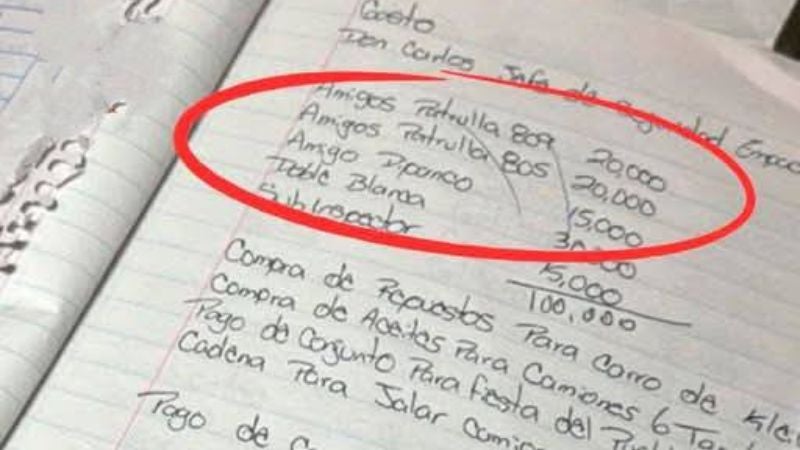 Gasto
Don Carlos Jefe de Seguridad Empaca
Amigos Patrulla 809 20,000
Amigos Patrulla 805 20,000
Amigo Dpanco 15,000
Doble Blanca 30,000
SubInspector 15,000
100,000
Compra de Repuestos Para Carro de Klei
Compra de Aceites Para Camiones 6 Ta
Pago de Conjunto Para Fiesta del
Cadena Para Jalar Camio
Pago de